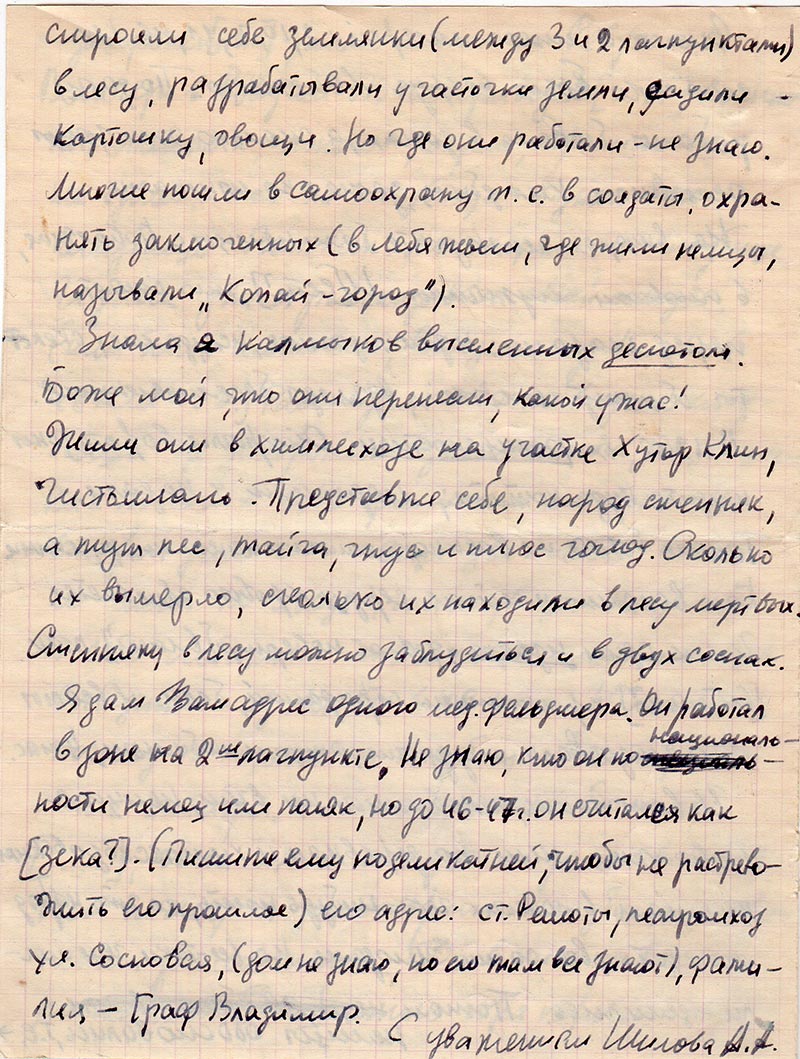 строили себе землянки (между 3 и 2 лагпунктами)
в лесу, разрабатывали участочки земли, садили -
картошку, овощи. Но где они работали - не знаю.
Многие пошли в самоохрану т. е. в солдаты, охра-
нять заключенных (в Лебяжьем, где жили немцы,
называли „Копай-город").
Знала я калмыков выселенных деспотом.
Боже мой, что они перенесли, какой ужас!
Жили они в химлесхозе на участке Хутор Клин,
Чистым лань. Представьте себе, народ степняк,
а тут лес, тайга, гнус и плюс голод. Сколько
их вымерло, сколько их находили в лесу мертвых.
Степняку в лесу можно заблудиться и в двух соснах.
Я дам Вам адрес одного мед. фельдшера. Он работал
в зоне на 2ом лагпункте. Не знаю, кто он по националь-
ности немец или поляк, но до 46-47г. он считался как
[зека?]. (Пишите ему поделикатней, чтобы не растрево-
жить его прошлое) его адрес: ст. Фаленты, леспромхоз
ул. Сосновая, (дом не знаю, но его там все знают), фами-
лия - Граф Владимир.
С уважением Шилова А.А.